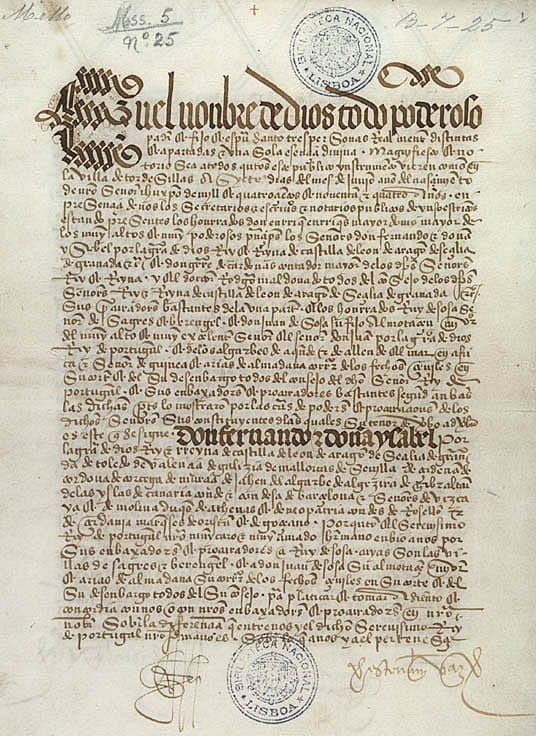 Mello
Mss. 5
nº. 25
B-7-25
BIBLIOTECA NACIONAL
LISBOA
En el nonbre de dios todo poderoso
padre & fijo & espu santo tres personas Real mente distintas
& apartadas & una sola esencia divina. Magnifiesto & no
torio sea a todos quantos este publico ynstrumento vieren como en
la villa de tordesillas A Siete dias del mes de junio año del nasçimiento
de nro Señor ihu xpo de mill & quatroçientos & noventa & quatro Años. en
presençia de nos los Secretarios & escrivanos & notarios publicos
estando presentes los honrrados don enrrique enrriques mayordomo mayor de
los muy altos & muy poderosos prinçipes los Señores don fernando & doña
ysabel por la graçia de dios Rey & Reyna de castilla de leon de aragon de seçilia
de granada & don gutierre de cardenas contador mayor de los dhos Señores
Rey & Reyna. & el doctor Rodrigo maldonado todos del consejo de los dhos
Señores Rey & Reyna de castilla de leon de aragon de Seçilia de granada
Sus procuradores bastantes de la una parte. & los honrrados Ruy de sosa Se
ñor de Sagres & berengel. & don Juan de Sosa su fijo Almotaçen mayor
del muy alto & muy exçelente Señor el señor don juan por la graçia de dios
Rey de portugal. & de los algarbes de aquende & de allende el mar en afri
ca & Señor de guinea & arias de almadana corregidor de los fechos çeviles en
Su corte & del Su desenbargo todos del consejo del dho Señor Rey de
portugal. & Sus enbaxadores & procuradores bastantes segund an bas
las dichas partes lo mostraron por las cartas de poderes & procuraçiones de los
dichos Señores Sus constituyentes de las quales Su tenor de verbo ad verbum
es este que se sigue don fernando & doña ysabel por
la graçia de dios Rey & Reyna de castilla de leon de aragon de Seçilia de grana
da de toledo de valençia de galizia de mallorcas de Sevilla de çerdeña de
cordova de corçega de murçia de jahen del algarbe de algezira de gibraltar
de las yslas de canaria conde & condesa de barçelona & Señores de vizca
ya & de molina duques de athenas & de neopatria condes de Rosellon &
de çerdania marqueses de oristan & de goçiano. Por quanto el Serenisimo
Rey de portugal nro muy caro & muy amado hermano enbio a nos por
Sus enbaxadores & procuradores a Ruy de sosa cuyas Son las vi
llas de sagres & berengel. & a don juan de sosa Su almotaçen mayor
& arias de almadana Su corregidor de los fechos çeviles en Su corte & del
Su desenbargo todos del Su consejo. para platicar & tomar asiento &
concordia con nos o con nros enbaxadores & procuradores en nro
nonbre Sobre la diferençia que entre nos y el dicho Serenisimo Rey
de portugal nro hermano es Sobre lo que a nos y a el pertenesçe
BIBLIOTECA NACIONAL
LISBOA